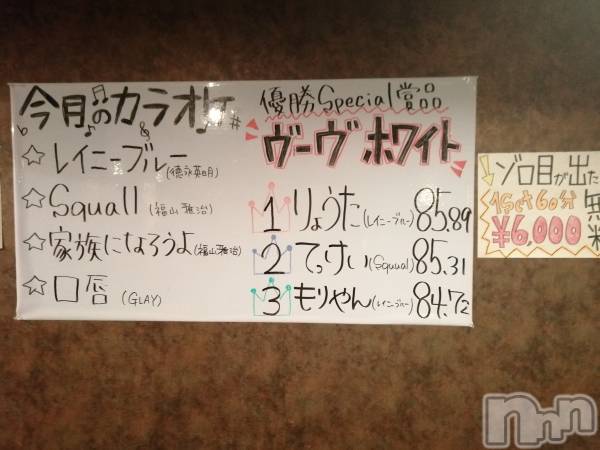 今月のカラオケ
☆レイニーブルー(徳永英明)
☆Squall(福山雅治)
☆家族になろうよ(福山雅治)
☆口唇(GLAY)
優勝Special賞品
ヴーヴ ホワイト
1 りょうた(レイニーブルー)85.89
2 てっけい(Squual)85.31
3 もりやん(レイニーブルー)84.72
ゾロ目が出た
1set60分
¥6,000
無料
nnn